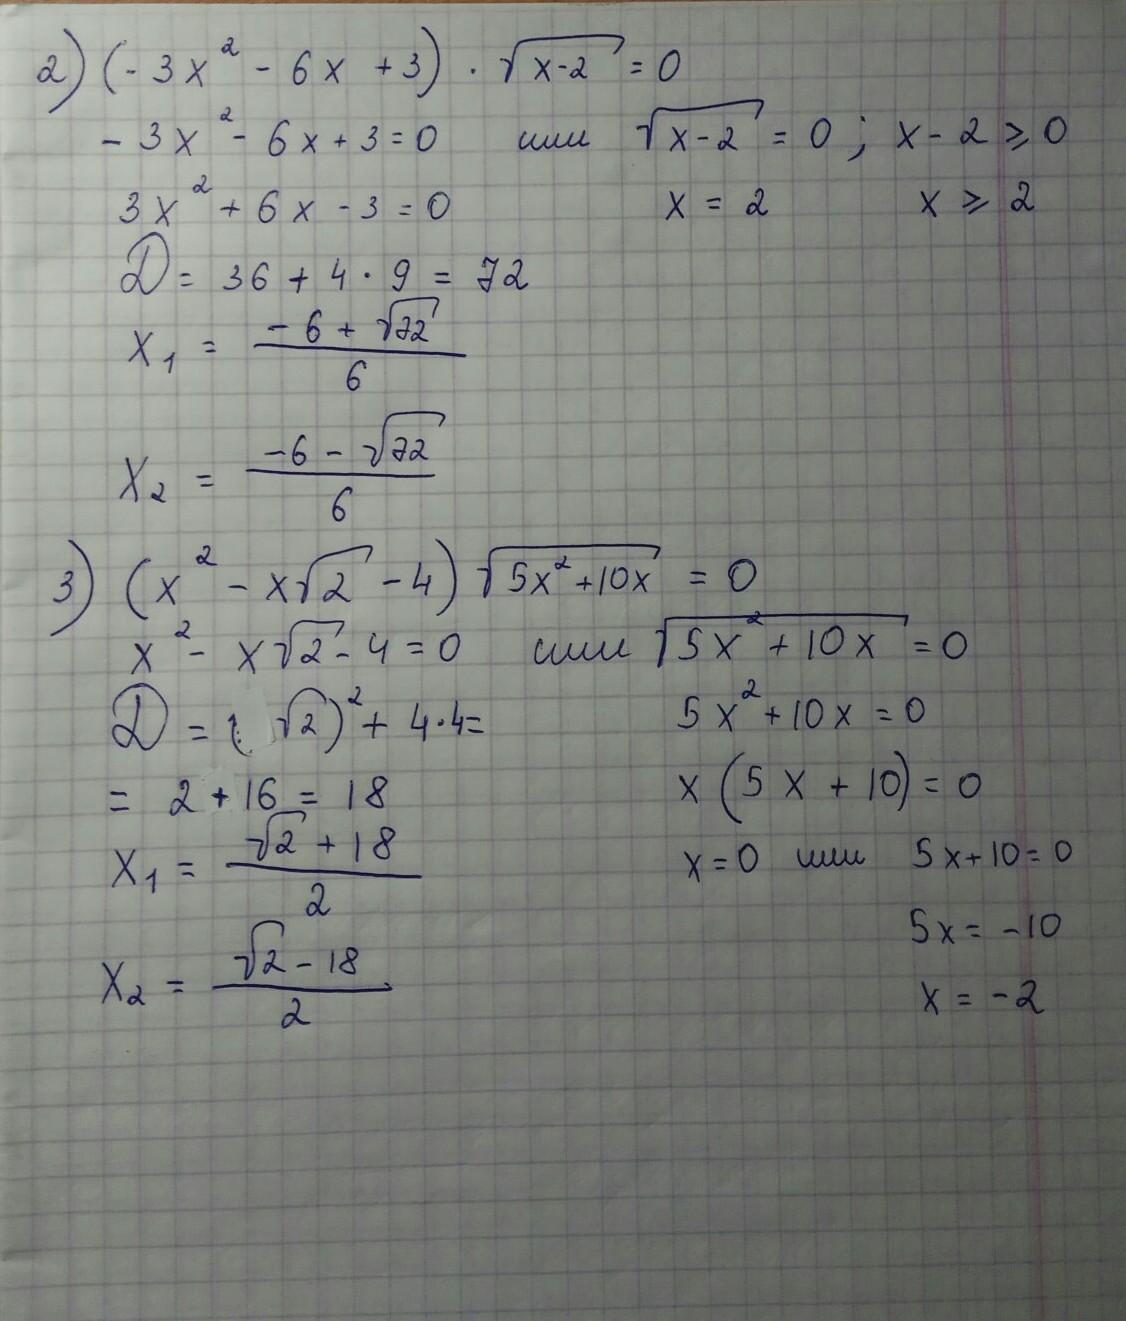 2) (-3x² - 6x + 3) · √(x-2) = 0
-3x² - 6x + 3 = 0 или √(x-2) = 0 ; x - 2 ⩾ 0
3x² + 6x - 3 = 0 x = 2 x ⩾ 2
D = 36 + 4 · 9 = 72
x₁ = (-6 + √72)/6
x₂ = (-6 - √72)/6
3) (x² - x√2 - 4) √(5x² + 10x) = 0
x² - x√2 - 4 = 0 или √(5x² + 10x) = 0
D = (√2)² + 4·4 = 5x² + 10x = 0
= 2 + 16 = 18 x (5x + 10) = 0
x₁ = (√2 + 18)/2 x = 0 или 5x + 10 = 0
5x = -10
x₂ = (√2 - 18)/2 x = -2